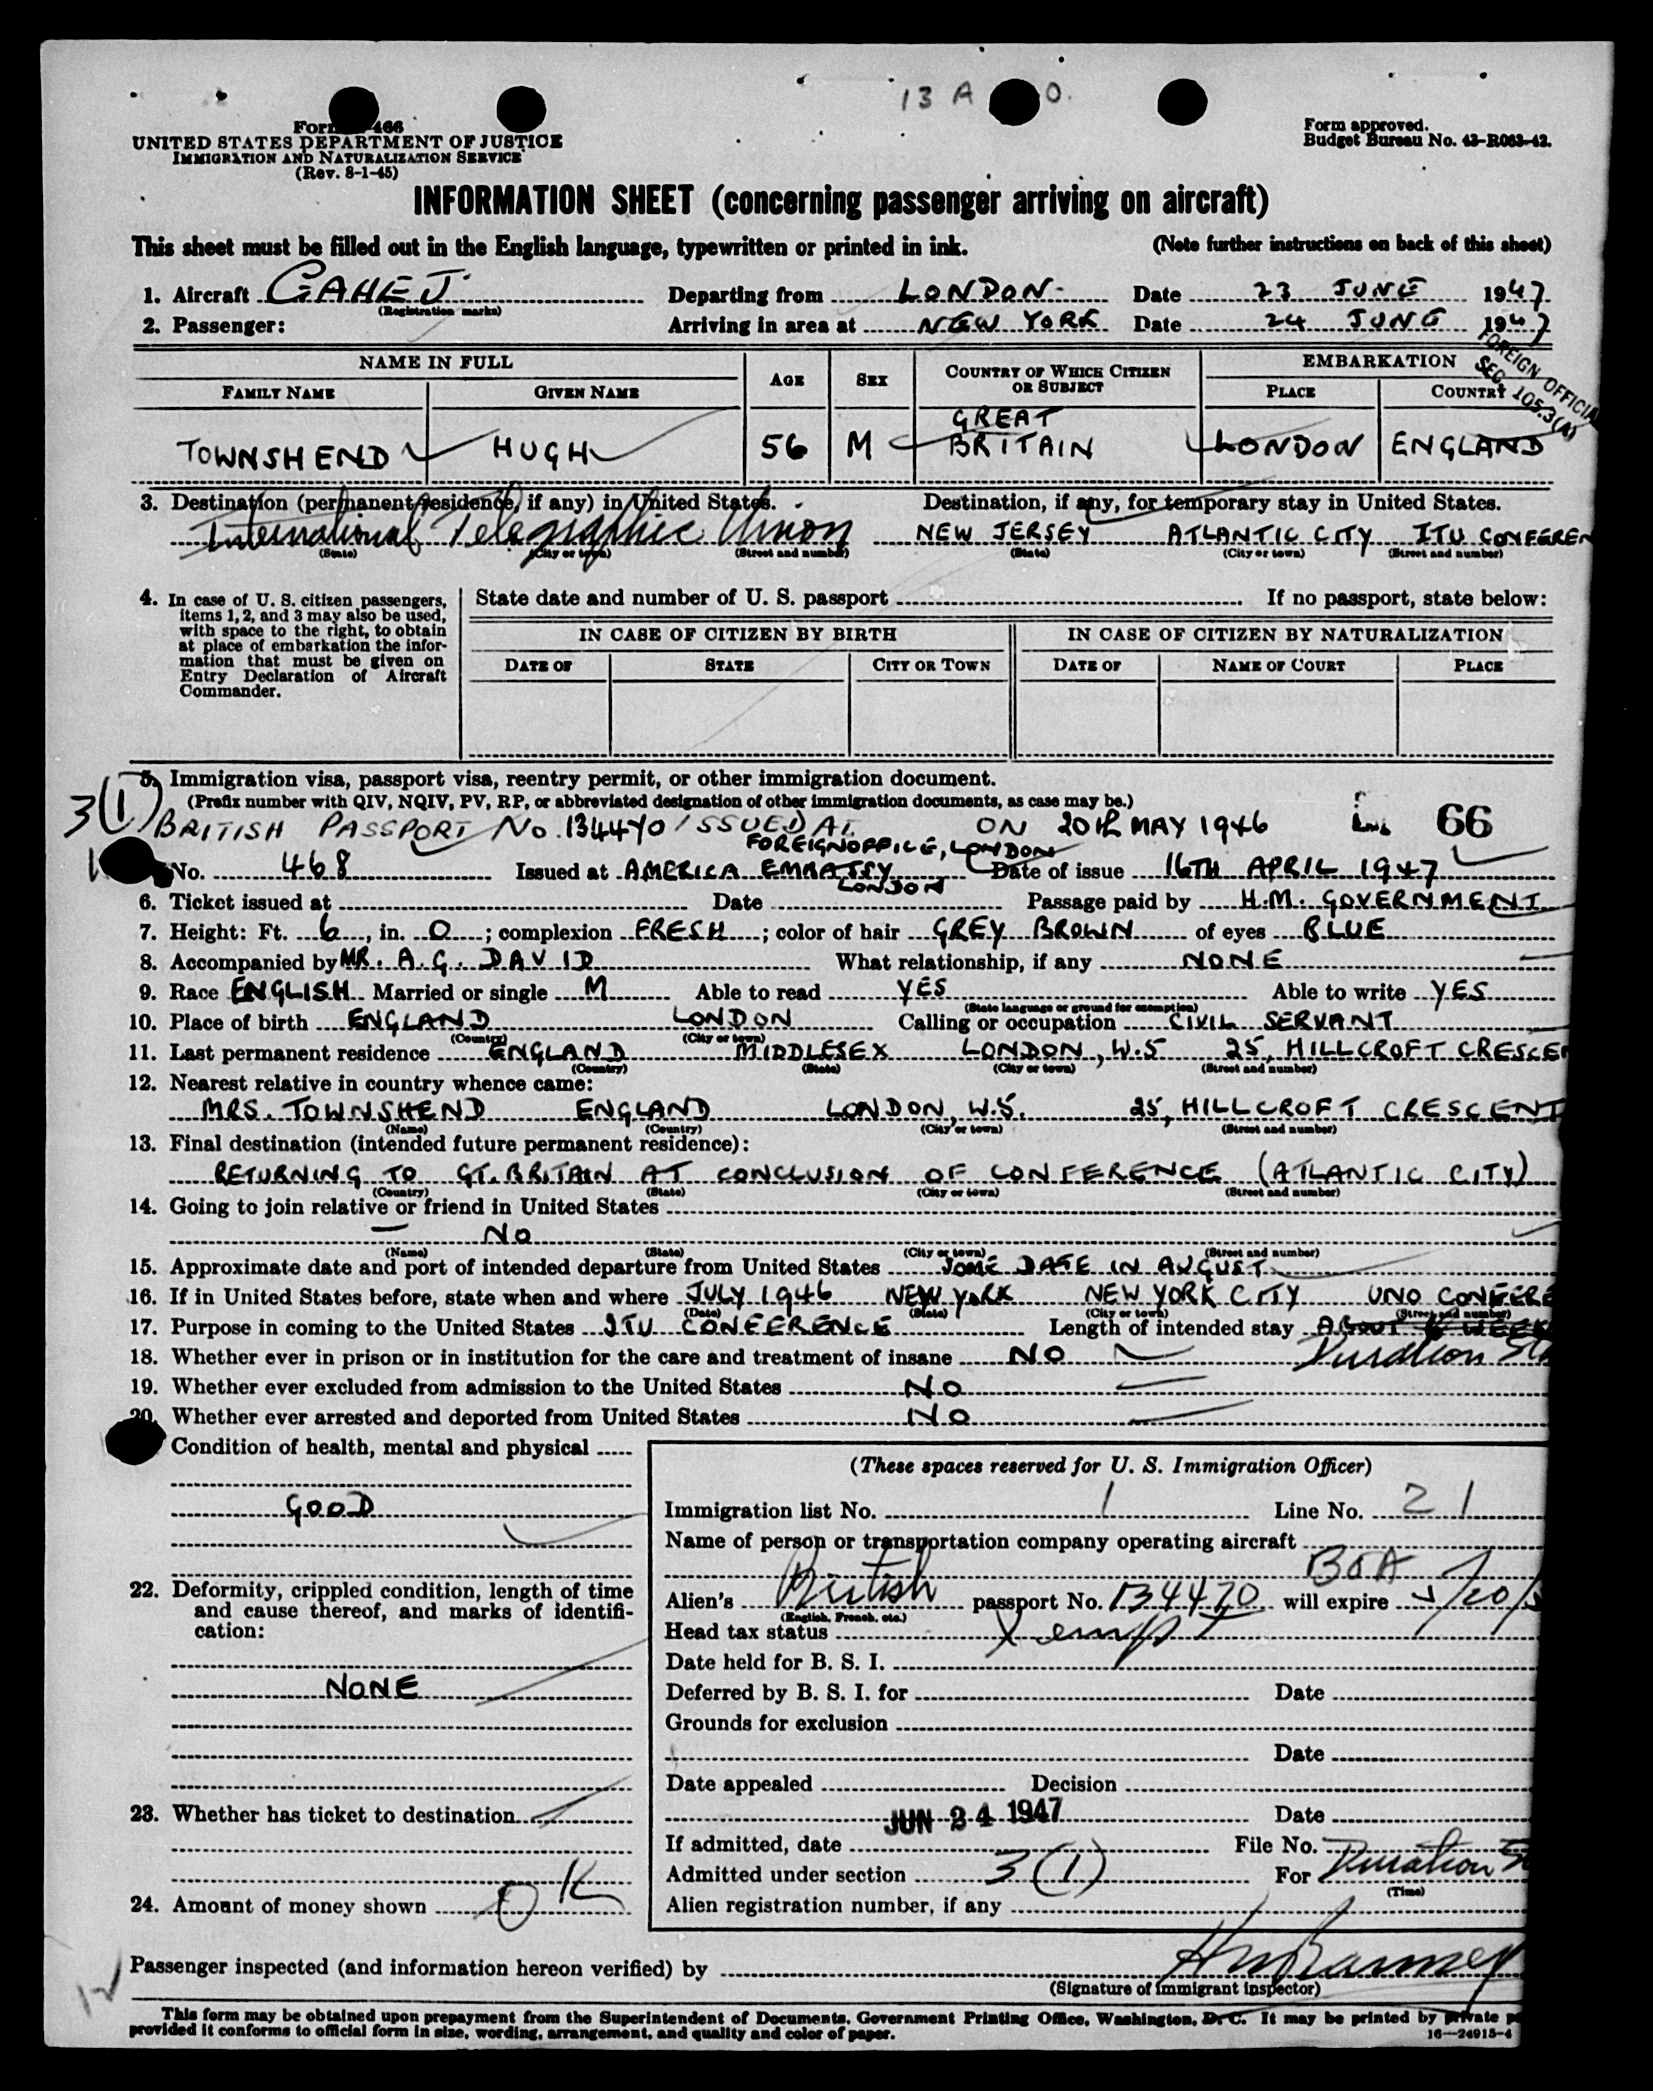 13 A O.
Form 466
UNITED STATES DEPARTMENT OF JUSTICE
IMMIGRATION AND NATURALIZATION SERVICE
(Rev. 8-1-45)
Form approved.
Budget Bureau No. 43-R063-42.
INFORMATION SHEET (concerning passenger arriving on aircraft)
This sheet must be filled out in the English language, typewritten or printed in ink. (Note further instructions on back of this sheet)
1. Aircraft GAHEJ Departing from LONDON Date 23 JUNE 1947
(Registration marks)
2. Passenger: Arriving in area at NEW YORK Date 24 JUNE 1947
FOREIGN OFFICIAL
SEC. 105.3(A)
NAME IN FULL AGE SEX COUNTRY OF WHICH CITIZEN OR SUBJECT EMBARKATION
FAMILY NAME GIVEN NAME PLACE COUNTRY
TOWNSHEND HUGH 56 M GREAT BRITAIN LONDON ENGLAND
3. Destination (permanent residence, if any) in United States. Destination, if any, for temporary stay in United States.
International Telegraphic Union NEW JERSEY ATLANTIC CITY ITU CONFEREN
(State) (City or town) (Street and number) (State) (City or town) (Street and number)
4. In case of U. S. citizen passengers, items 1, 2, and 3 may also be used, with space to the right, to obtain at place of embarkation the information that must be given on Entry Declaration of Aircraft Commander.
State date and number of U. S. passport If no passport, state below:
IN CASE OF CITIZEN BY BIRTH IN CASE OF CITIZEN BY NATURALIZATION
DATE OF STATE CITY OR TOWN DATE OF NAME OF COURT PLACE
5. Immigration visa, passport visa, reentry permit, or other immigration document.
3(1) (Prefix number with QIV, NQIV, PV, RP, or abbreviated designation of other immigration documents, as case may be.)
BRITISH PASSPORT No. 134470 ISSUED AT FOREIGN OFFICE, LONDON ON 20th MAY 1946 66
No. 468 Issued at AMERICA EMBASSY LONDON Date of issue 16TH APRIL 1947
6. Ticket issued at Date Passage paid by H.M. GOVERNMENT
7. Height: Ft. 6, in. 0; complexion FRESH; color of hair GREY BROWN of eyes BLUE
8. Accompanied by MR. A. G. DAVID What relationship, if any NONE
9. Race ENGLISH Married or single M Able to read YES Able to write YES
(State language or ground for exemption)
10. Place of birth ENGLAND LONDON Calling or occupation CIVIL SERVANT
(Country) (City or town)
11. Last permanent residence ENGLAND MIDDLESEX LONDON, W.5 25, HILLCROFT CRESCEN
(Country) (State) (City or town) (Street and number)
12. Nearest relative in country whence came:
MRS. TOWNSHEND ENGLAND LONDON, W.5. 25, HILLCROFT CRESCENT
(Name) (Country) (City or town) (Street and number)
13. Final destination (intended future permanent residence):
RETURNING TO GT. BRITAIN AT CONCLUSION OF CONFERENCE (ATLANTIC CITY)
(Country) (State) (City or town) (Street and number)
14. Going to join relative or friend in United States
— NO
(Name) (State) (City or town) (Street and number)
15. Approximate date and port of intended departure from United States SOME DATE IN AUGUST
16. If in United States before, state when and where JULY 1946 NEW YORK NEW YORK CITY UNO CONFERE
(Date) (State) (City or town) (Street and number)
17. Purpose in coming to the United States ITU CONFERENCE Length of intended stay ABOUT 6 WEEK
18. Whether ever in prison or in institution for the care and treatment of insane NO Duration St
19. Whether ever excluded from admission to the United States NO
20. Whether ever arrested and deported from United States NO
Condition of health, mental and physical
GOOD
22. Deformity, crippled condition, length of time and cause thereof, and marks of identification:
NONE
23. Whether has ticket to destination
24. Amount of money shown OK
(These spaces reserved for U. S. Immigration Officer)
Immigration list No. 1 Line No. 21
Name of person or transportation company operating aircraft
BOA
Alien's British passport No. 134470 will expire 5/20/5
(English, French, etc.)
Head tax status Xempt
Date held for B. S. I.
Deferred by B. S. I. for Date
Grounds for exclusion
Date
Date appealed Decision
JUN 24 1947 Date
If admitted, date File No.
Admitted under section 3(1) For Duration St
(Time)
Alien registration number, if any
Passenger inspected (and information hereon verified) by
(Signature of immigrant inspector)
This form may be obtained upon prepayment from the Superintendent of Documents, Government Printing Office, Washington, D. C. It may be printed by private p
provided it conforms to official form in size, wording, arrangement, and quality and color of paper. 16—24915-4